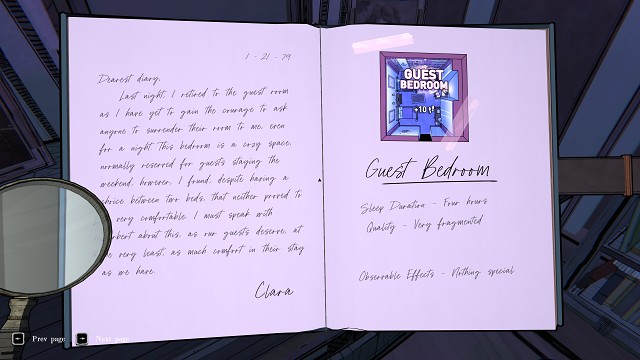 1 - 21 - 79
Dearest diary,
Last night, I retired to the guest room
as I have yet to gain the courage to ask
anyone to surrender their room to me, even
for a night. This bedroom is a cozy space,
normally reserved for guests staying the
weekend, however, I found, despite having a
choice between two beds, that neither proved to
very comfortable. I must speak with
about this, as our guests deserve, at
very least, as much comfort in their stay
as we have.
Clara
GUEST
BEDROOM
+10
Guest Bedroom
Sleep Duration - Four hours
Quality - Very fragmented
Observable Effects - Nothing special
Prev page
Next page